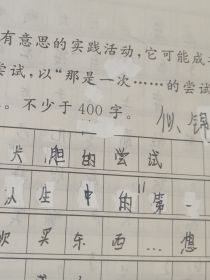 有意思的实践活动,它可能成
尝试,以“那是一次……的尝试
。不少于400字。
大胆的尝试
人生中的"第一
欢买东西…想